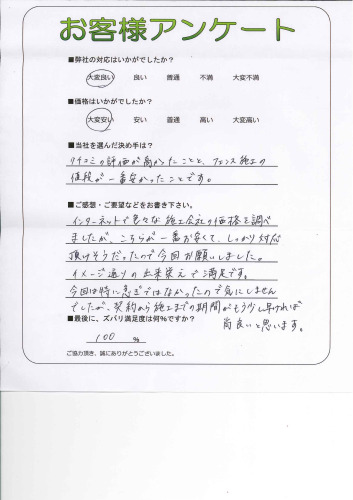 お客様アンケート
■弊社の対応はいかがでしたか?
大変良い 良い 普通 不満 大変不満
■価格はいかがでしたか?
大変安い 安い 普通 高い 大変高い
■当社を選んだ決め手は?
クチコミの評価が高かったことと、フェンス施工の
値段が一番安かったことです。
■ご感想・ご要望などをお書き下さい。
インターネットで色々な施工会社の価格を調べ
ましたが、こちらが一番お安くて、しっかり対応
頂けそうだったので今回お願いしました。
イメージ通りの出来栄えで満足です。
今回は特に急ぎではなかったので気にしません
でしたが、契約から施工までの期間がもう少し早ければ
尚良いと思います。
■最後に、ズバリ満足度は何%ですか?
100 %
ご協力頂き、誠にありがとうございました。